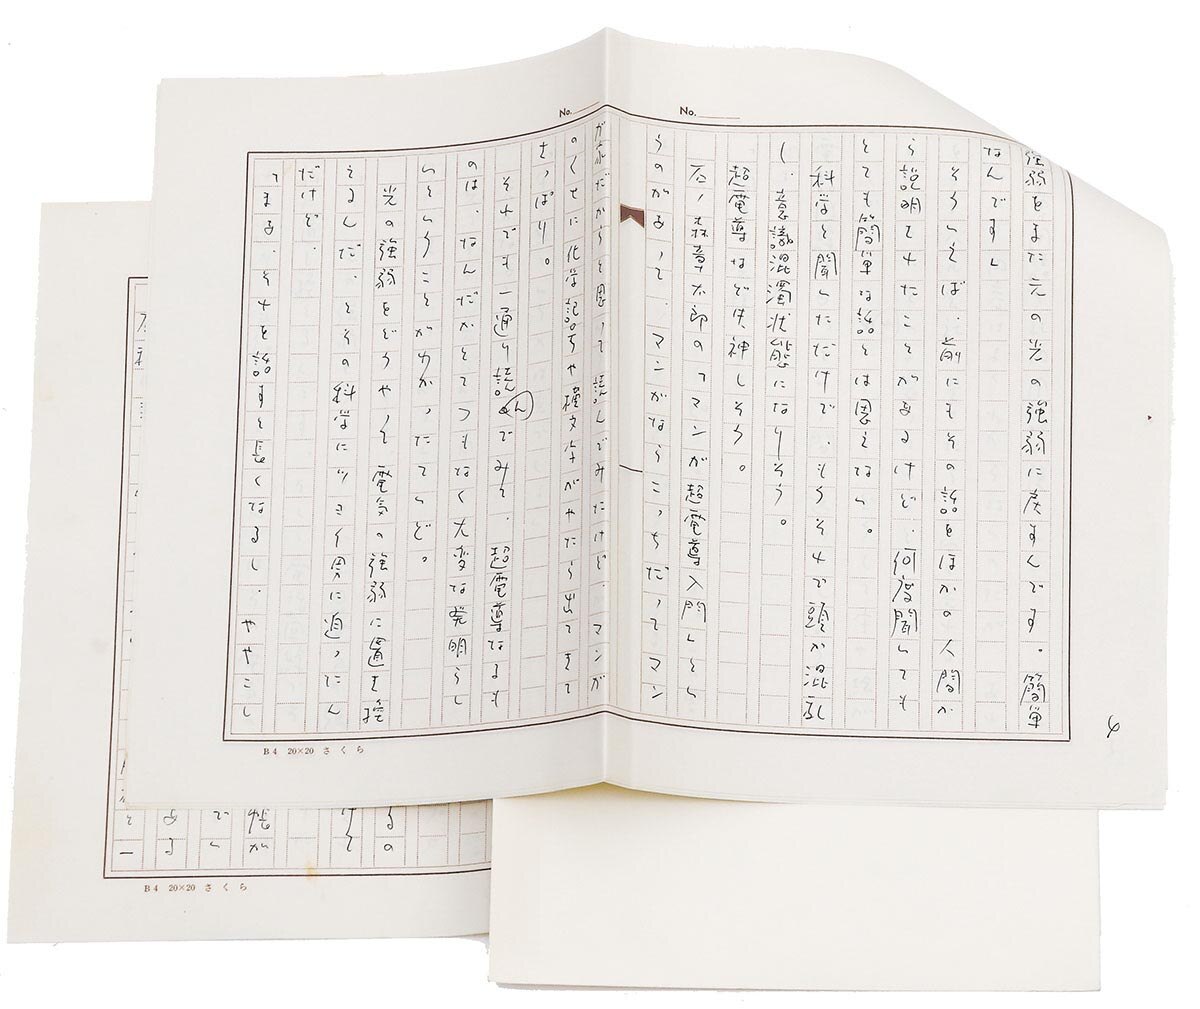 No.
No.
強弱をまた元の光の強弱に戻すんです。簡単
なんです」
そういえば、前にもその話をほかの人間か
ら説明されたことがあるけど、何度聞いても
とても簡単な話とは思えない。
科学と聞いただけで、もうそれで頭が混乱
し、意識混濁状態になりそう。
超電導など失神しそう。
石ノ森章太郎の「マンガ超電導入門」とい
うのがあって、マンガならこっちだってマン
が家だからと思って読んでみたけど、マンガ
のくせに化学記号や横文字がやたら出てきて
さっぱり。
それでも一通り読んでみて、超電導なるも
のは、なんだかとてつもなく大変な発明らし
いということがわかったていど。
光の強弱をどうやって電気の強弱に置き換
えるんだ、とその科学にツヨイ男に迫ったん
だけど、
「まあ、それを話すと長くなるし、ややこし
6
B4 20×20 さくら
B4 20×20 さくら